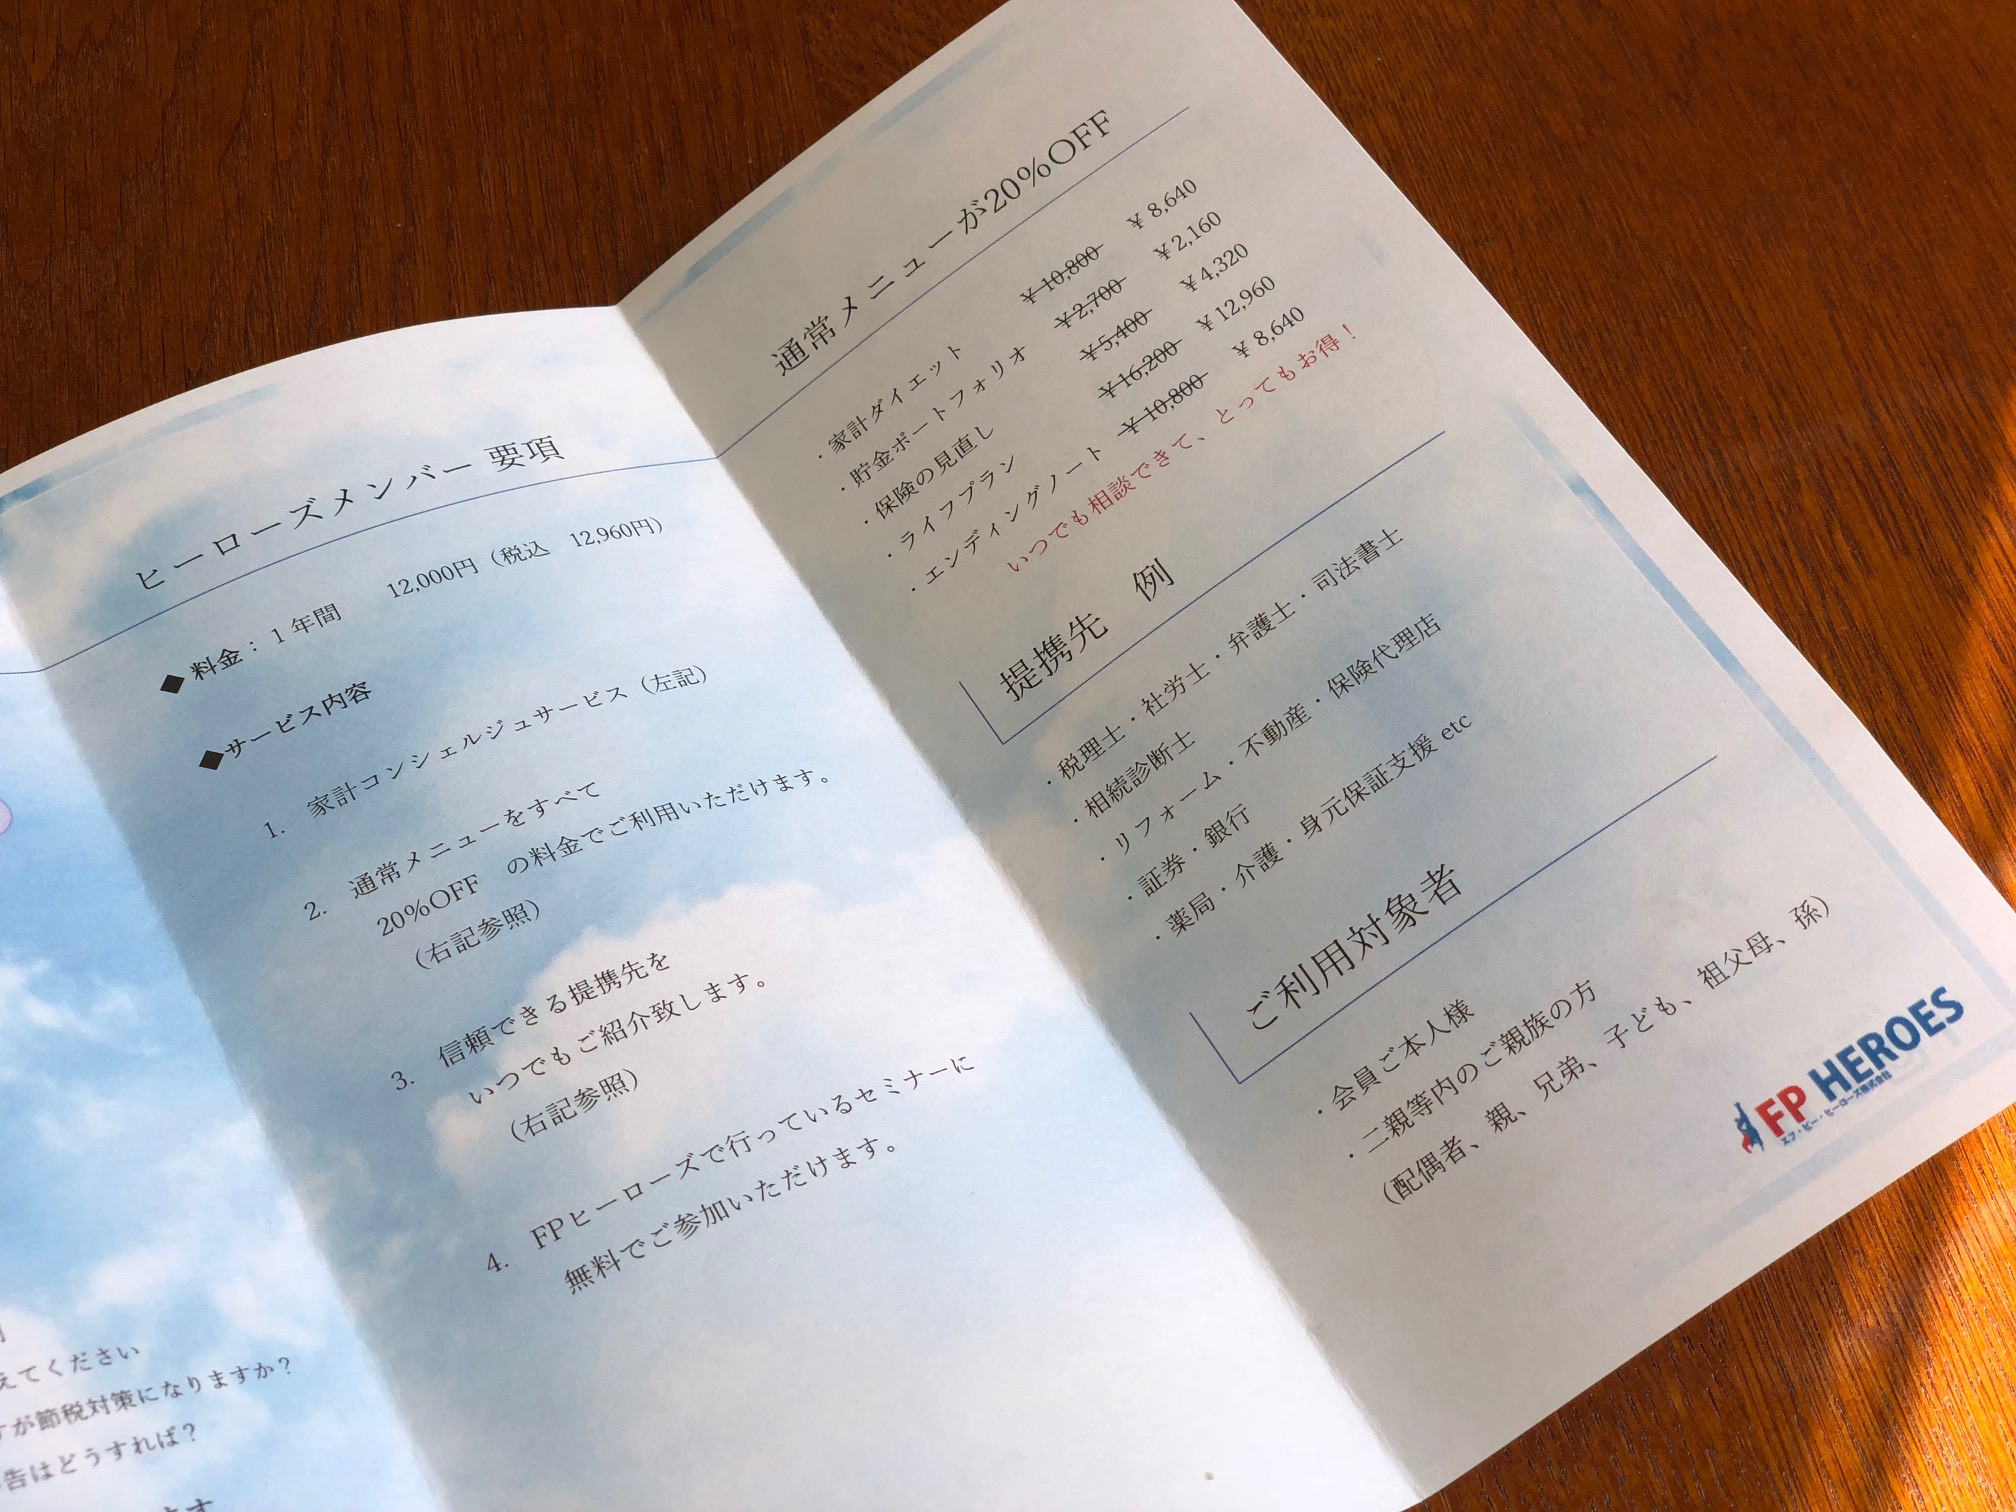 えてください
が節税対策になりますか？
告はどうすれば？
ヒーローズメンバー 要項
◆ 料金： 1 年間　12,000円（税込　12,960円）
◆サービス内容
1.　家計コンシェルジュサービス（左記）
2.　通常メニューをすべて
20%OFF　の料金でご利用いただけます。
（右記参照）
3.　信頼できる提携先を
いつでもご紹介致します。
（右記参照）
4.　FPヒーローズで行っているセミナーに
無料でご参加いただけます。
通常メニューが20%OFF
・家計ダイエット　￥10,800　￥8,640
・貯金ポートフォリオ　￥2,700　￥2,160
・保険の見直し　￥5,400　￥4,320
・ライフプラン　￥16,200　￥12,960
・エンディングノート　￥10,800　￥8,640
いつでも相談できて、とってもお得！
提携先　例
・税理士・社労士・弁護士・司法書士
・相続診断士
・リフォーム・不動産・保険代理店
・証券・銀行
・薬局・介護・身元保証支援 etc
ご利用対象者
・会員ご本人様
・二親等内のご親族の方
（配偶者、親、兄弟、子ども、祖父母、孫）
FP HEROES
エフ・ピー・ヒーローズ株式会社